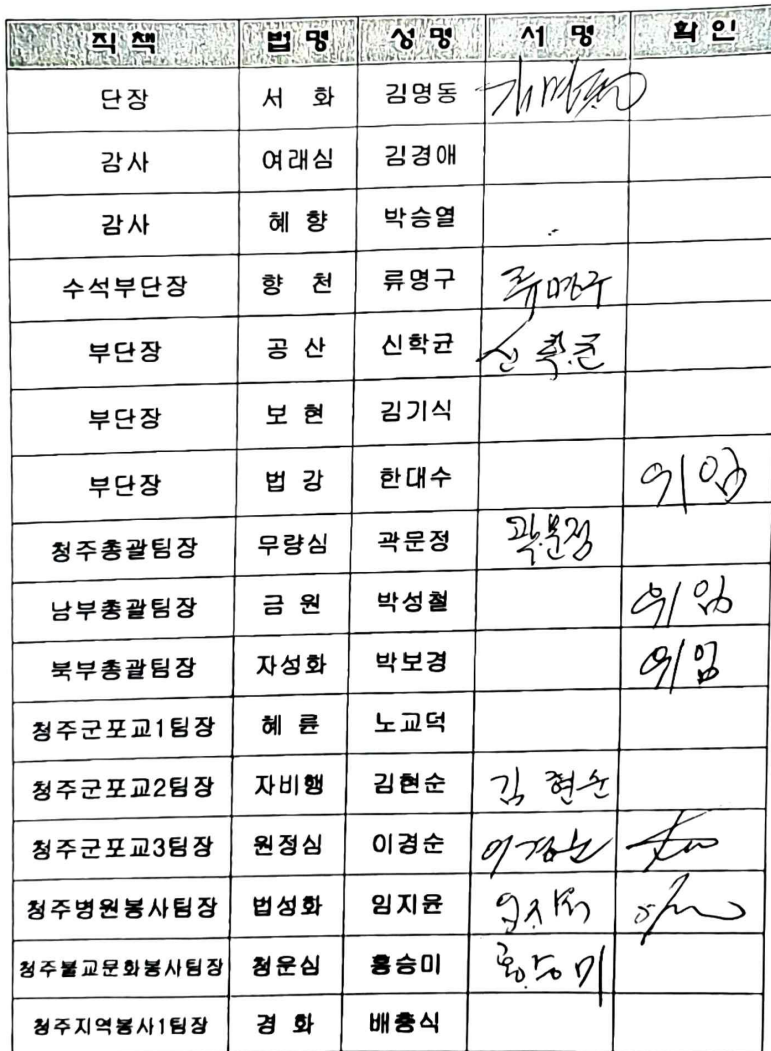 직 책 법 명 성 명 서 명 확 인
단장 서 화 김명동 김명동
감사 여래심 김경애
감사 혜 향 박승열
수석부단장 향 천 류명구 류명구
부단장 공 산 신학균 신학균
부단장 보 현 김기식
부단장 법 강 한대수 위임
청주총괄팀장 무량심 곽문정 곽문정
남부총괄팀장 금 원 박성철 위임
북부총괄팀장 자성화 박보경 위임
청주군포교1팀장 혜 륜 노교덕
청주군포교2팀장 자비행 김현순 김현순
청주군포교3팀장 원정심 이경순 이경순
청주병원봉사팀장 법성화 임지윤 임지윤
청주불교문화봉사팀장 청운심 홍승미 홍승미
청주지역봉사1팀장 경 화 배충식